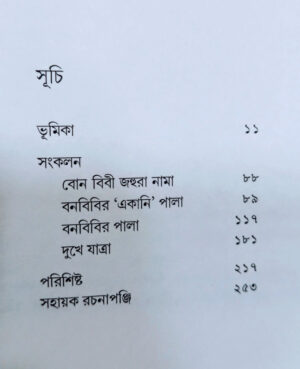 সূচি
ভূমিকা ১১
সংকলন
বোন বিবী জহুরা নামা ৮৮
বনবিবির ‘একানি’ পালা ৮৯
বনবিবির পালা ১১৭
দুখে যাত্রা ১৮১
পরিশিষ্ট ২১৭
সহায়ক রচনাপঞ্জি ২৫৩